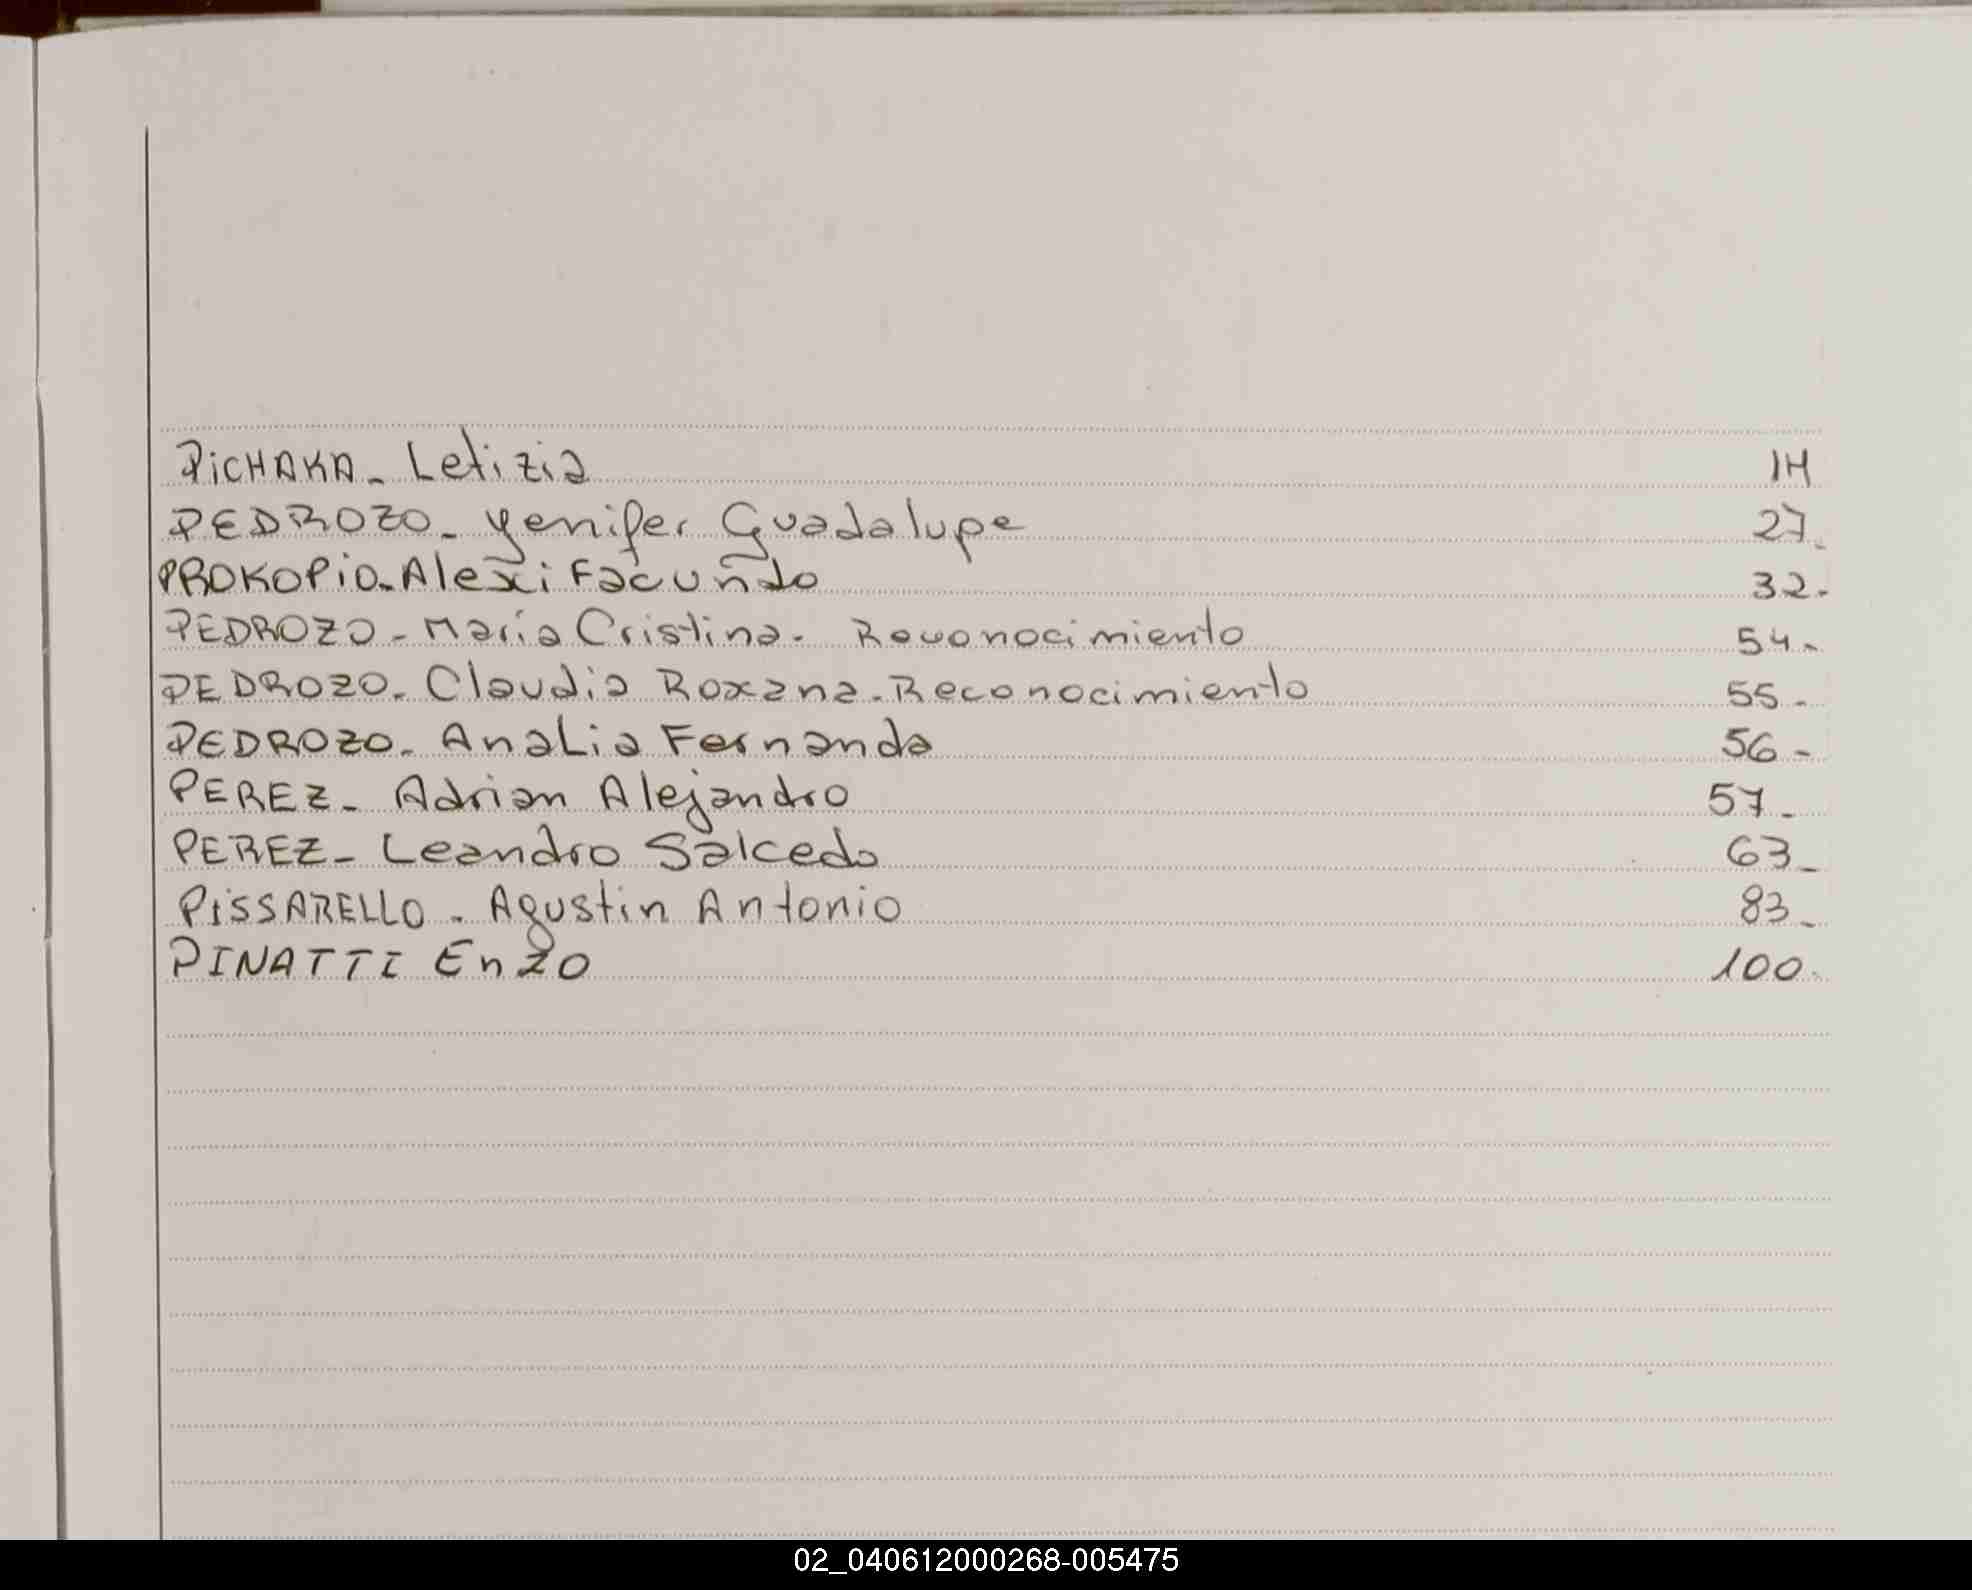 PiCHAKA - Letizia 14
PEDROZO - Yenifer Guadalupe 27-
PROKOPiO - Alexi Facundo 32-
PEDROZO - María Cristina - Reconocimiento 54-
PEDROZO - Claudia Roxana - Reconocimiento 55-
PEDROZO - Analia Fernanda 56-
PEREZ - Adrian Alejandro 57-
PEREZ - Leandro Salcedo 63-
PiSSARELLO - Agustin Antonio 83-
PINATTI Enzo 100-
02_040612000268-005475